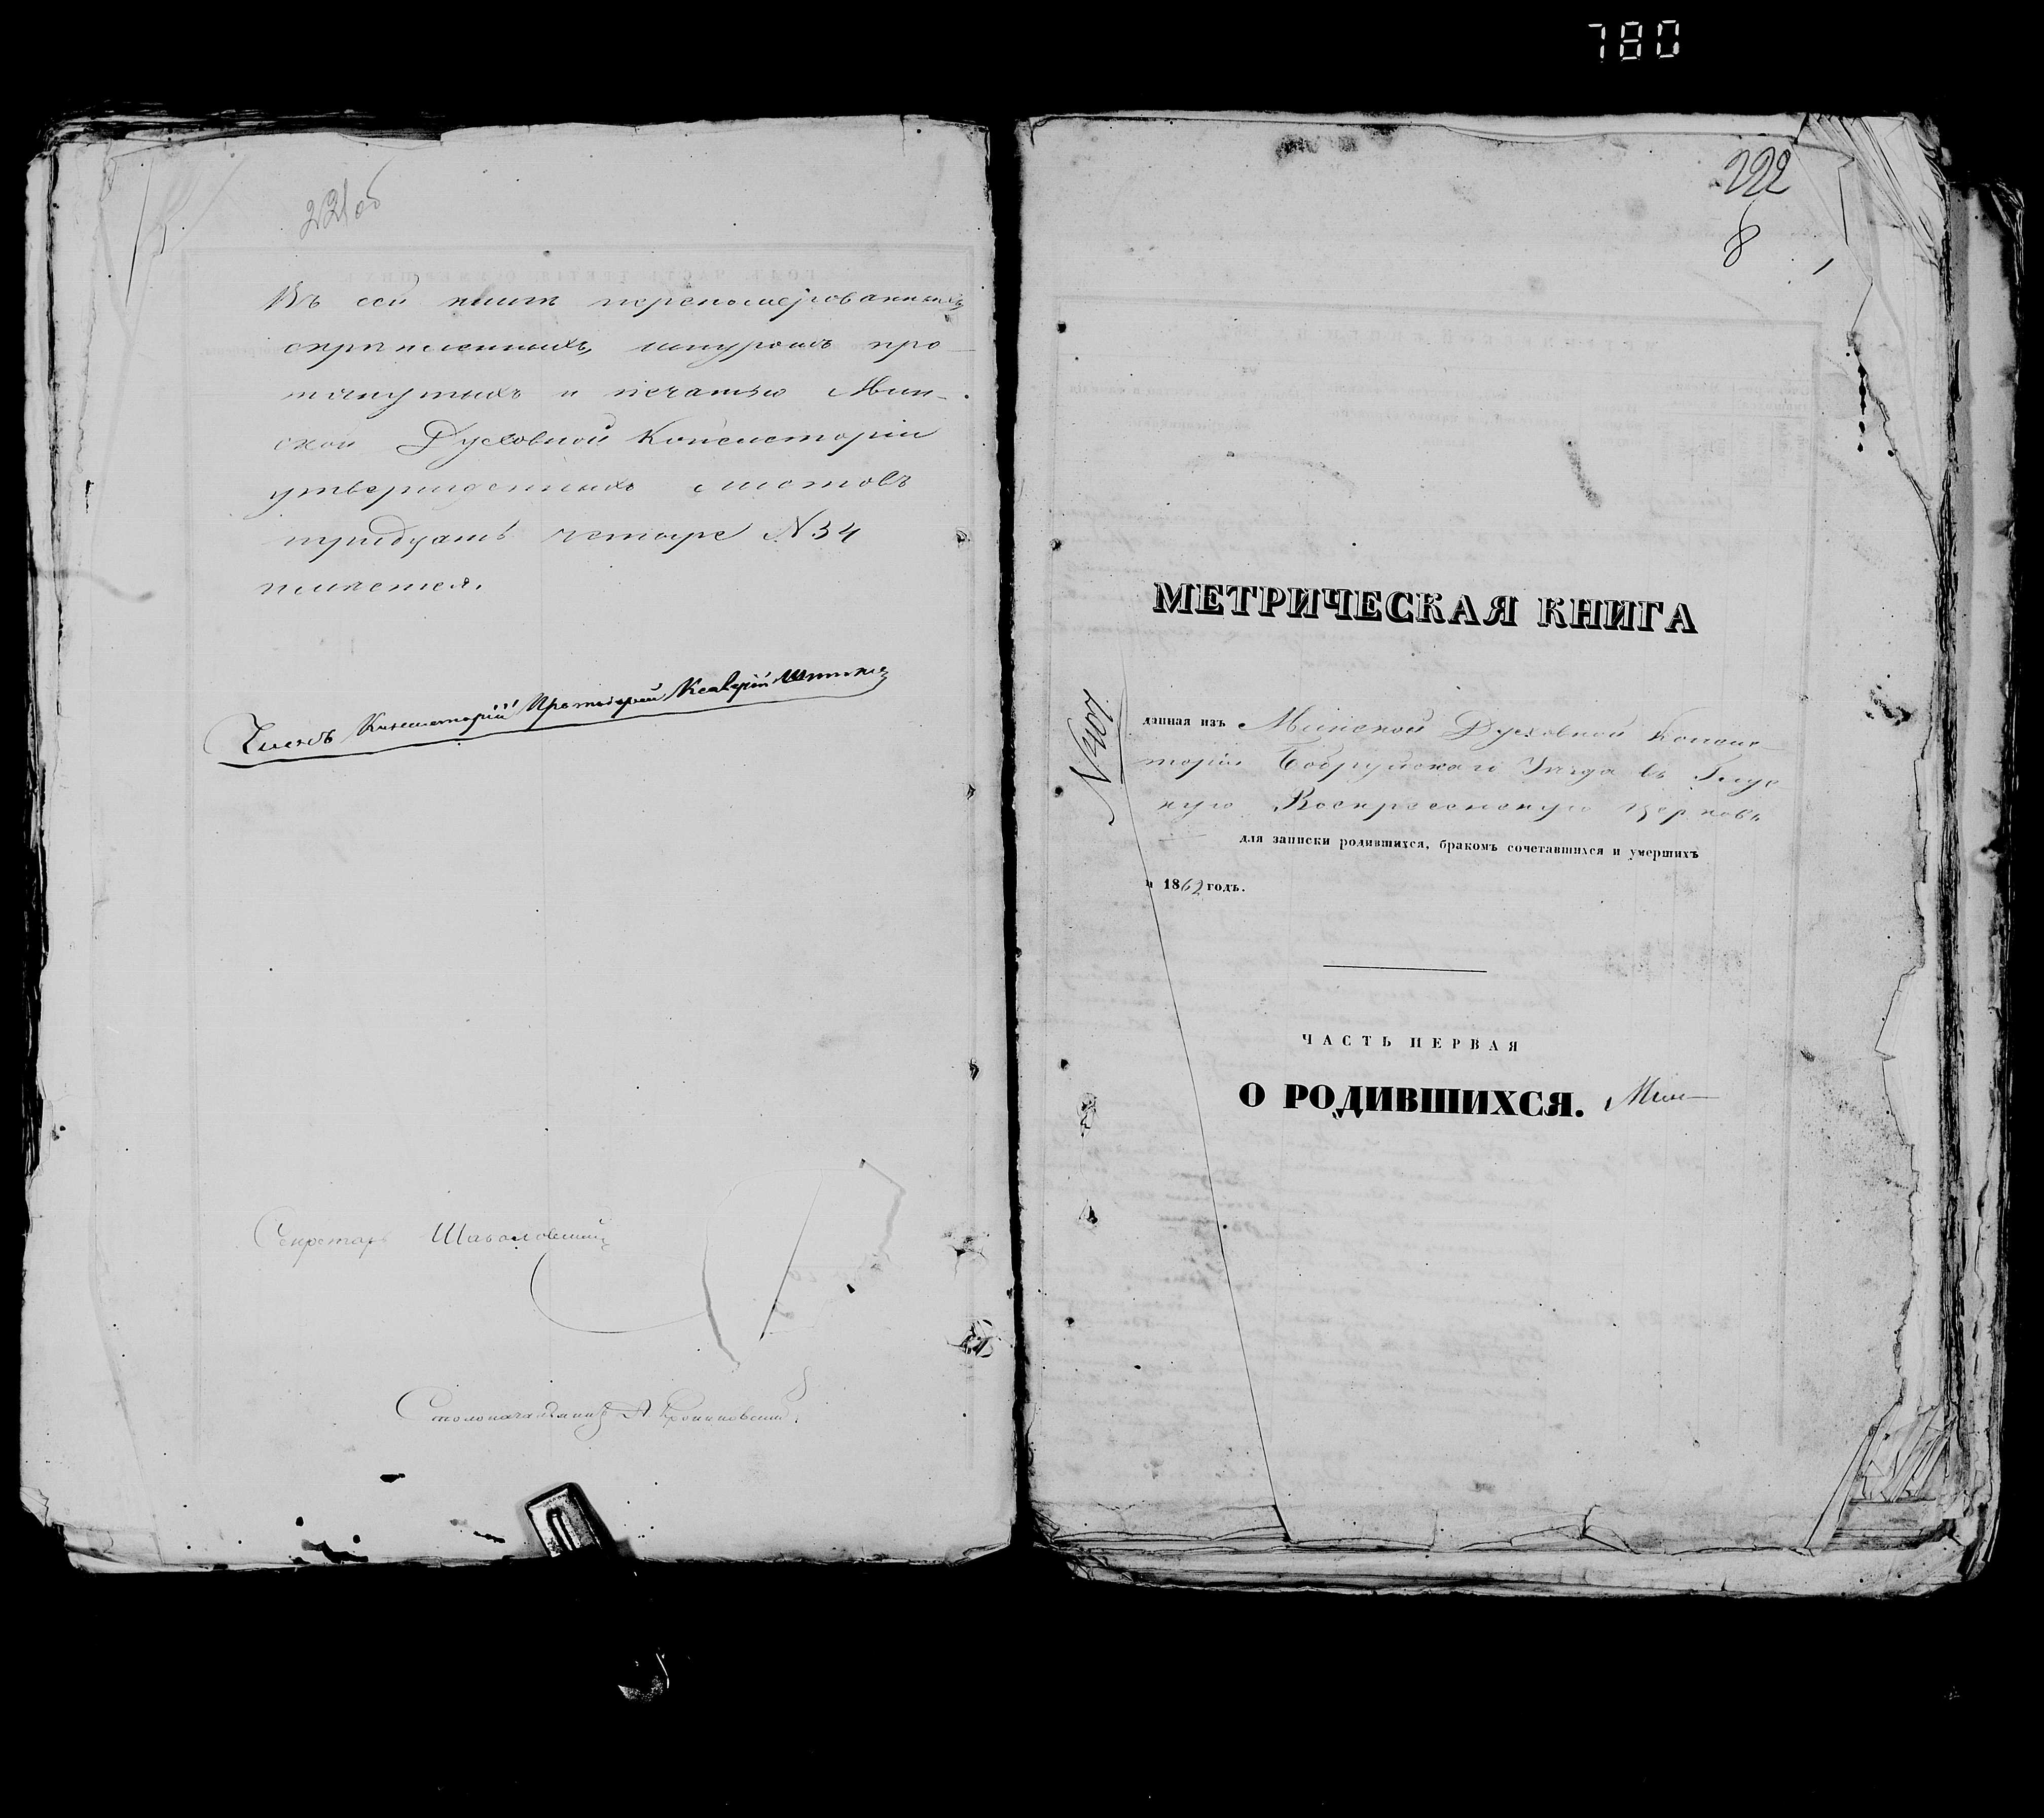 780
221об
Въ сей книгѣ перенумерованныхъ
скрѣпленныхъ, шнуромъ про-
тянутыхъ и печатью Мин-
ской Духовной Консисторіи
утвержденныхъ листовъ
тридцать четыре N34
имѣется.
Членъ Консисторіи Протоіерей
Секретарь
Столоначальникъ
222
8
МЕТРИЧЕСКАЯ КНИГА
N407
данная изъ Минской Духовной Консис-
торіи Бобруйскаго Уѣзда въ
Воскресенскую церковь
для записки родившихся, бракомъ сочетавшихся и умершихъ
1862 годъ.
ЧАСТЬ ПЕРВАЯ
О РОДИВШИХСЯ. Мин-